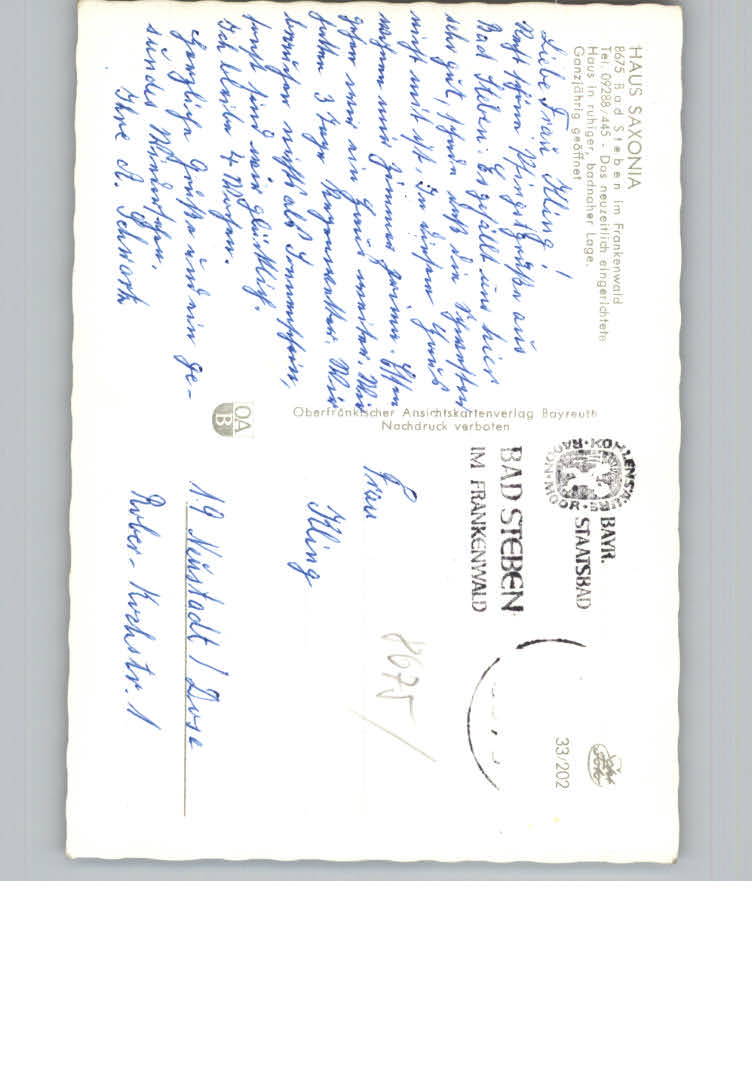 HAUS SAXONIA
8675 Bad Steben im Frankenwald
Tel. 09288/445 - Das neuzeitlich eingerichtete
Haus in ruhiger, badnaher Lage.
Ganzjährig geöffnet
Liebe Frau Kling!
Recht schöne Pfingstgrüße aus
Bad Steben. Es gefällt uns hier
sehr gut, schade daß die Schwester
nicht mit ist. In diesem Haus
wohnen wir Zimmer prima. Essen
gehen wir ein Haus weiter. Wir
hatten 3 Tage Regenwetter. Wir
brauchen nichts als Sonnenschein,
sonst sind wir glücklich.
Ich bleibe 4 Wochen.
Herzliche Grüße und ein ge-
sundes Wiedersehen.
Ihre A. Schwark
Oberfränkischer Ansichtskartenverlag Bayreuth
Nachdruck verboten
OA
B
KOHLENSÄURE
RADON · MOOR
BAYR.
STAATSBAD
BAD STEBEN
IM FRANKENWALD
33/202
8675
Frau
Kling
19 Neustadt / Dosse
Rober-Kochstr. 1